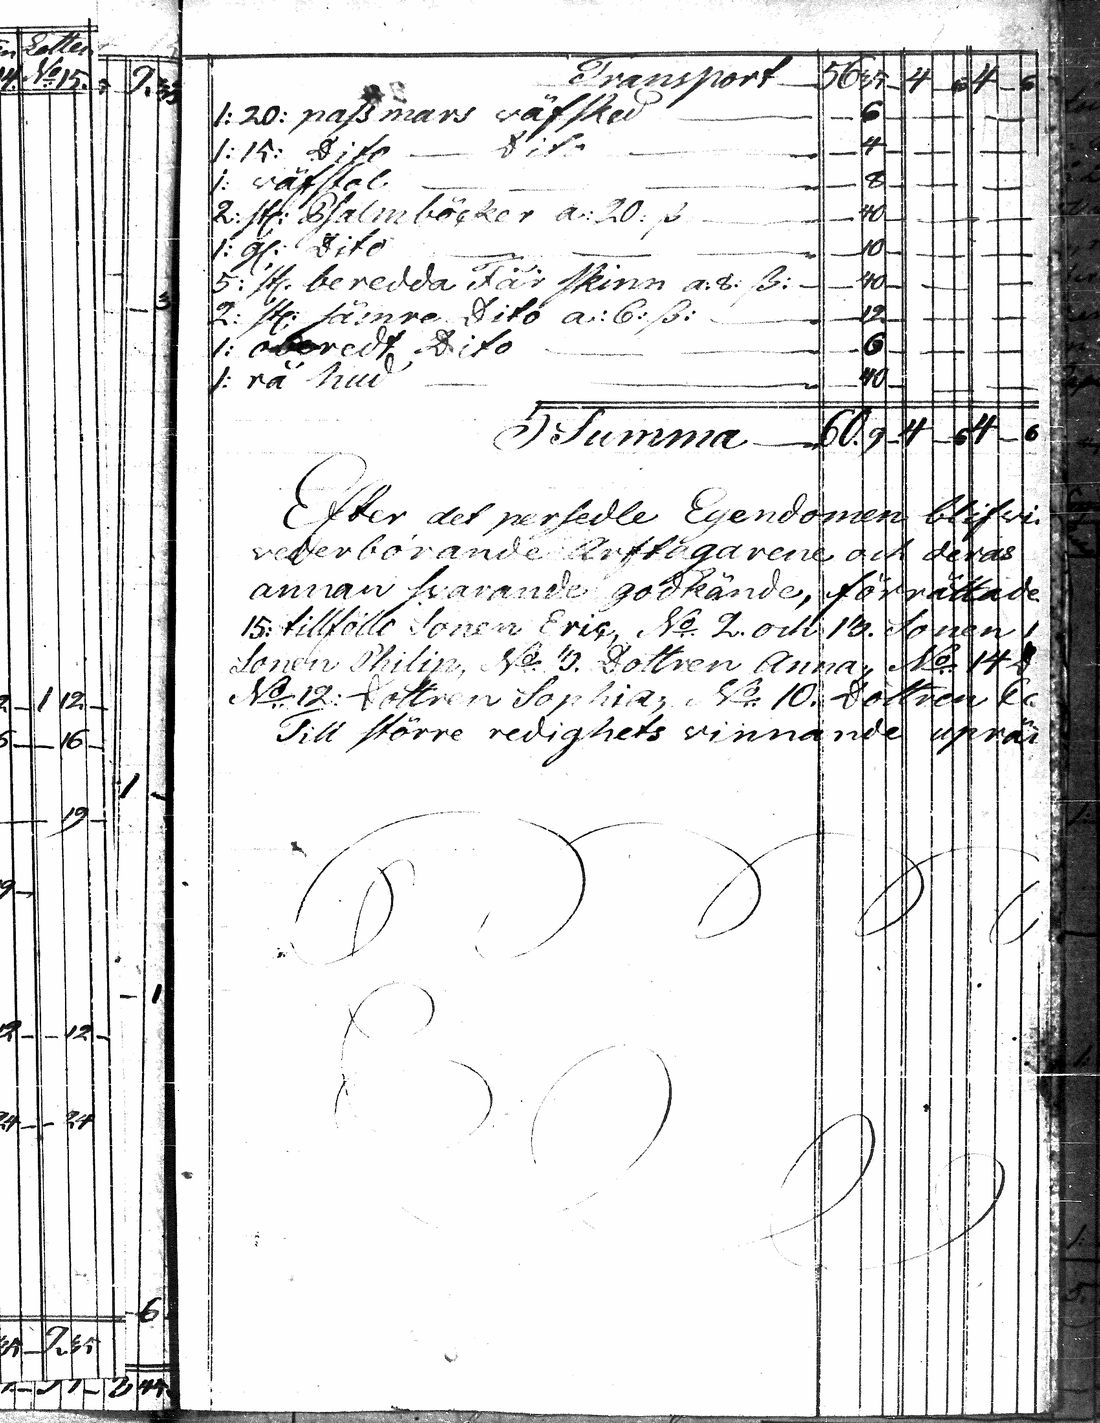 Lotten
No 15.
Transport 56 35 4 6 4 6
1: 20: pass mars väfsked 6
1: 15: Dito Dito 4
1: väfstol 8
2: st: Psalmböcker a: 20: ß 40
1: gl: Dito 10
5: st. beredda Får skinn a: 8: ß: 40
2: st: sämre Dito a: 6: ß: 12
1: oberedt Dito 6
1: rå hud 40
Summa 60. 9 4 6 4 6
Efter det persedle Egendomen blifvi
vederbörande Arftagarene och deras
annan svarande godkände, förrättade
15: tillföll Sonen Eric, No 2. och 13. Sonen
Sonen Philip, No 3. Dottren Anna, No 14
No 12: Dottren Sophia, No 10. Dottren
Till större redighets vinnande uprät
12
16
19
12
24 24
6